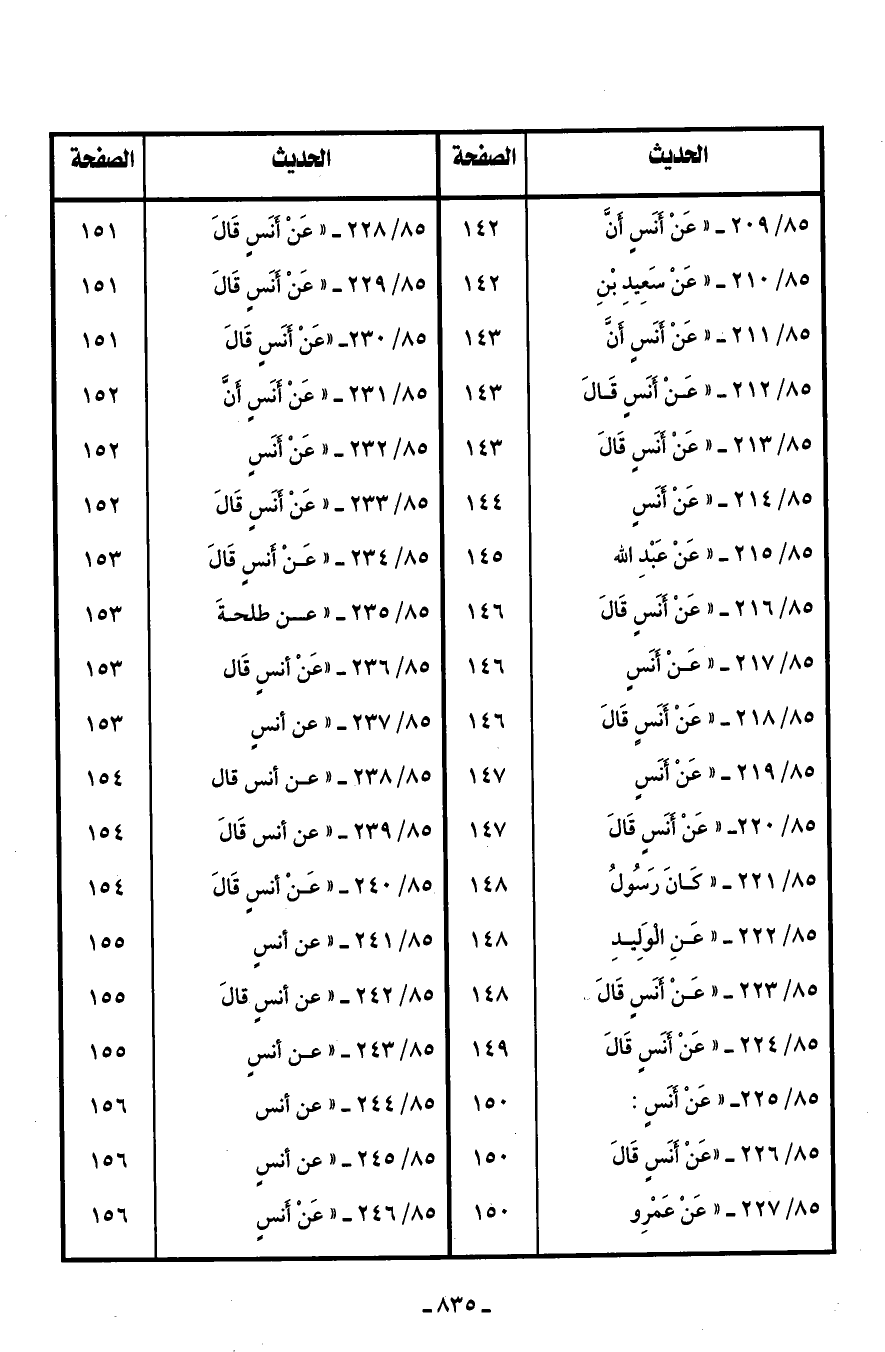 الحديث الصفحة الحديث الصفحة
٨٥/ ٢٠٩ ـ « عَنْ أَنَسٍ أَنَّ ١٤٢ ٨٥/ ٢٢٨ ـ « عَنْ أَنَسٍ قَالَ ١٥١
٨٥/ ٢١٠ ـ « عَنْ سَعِيدِ بْنِ ١٤٢ ٨٥/ ٢٢٩ ـ « عَنْ أَنَسٍ قَالَ ١٥١
٨٥/ ٢١١ ـ « عَنْ أَنَسٍ أَنَّ ١٤٣ ٨٥/ ٢٣٠ـ «عَنْ أَنَسٍ قَالَ ١٥١
٨٥/ ٢١٢ ـ « عَـنْ أَنَسٍ قَـالَ ١٤٣ ٨٥/ ٢٣١ ـ « عَنْ أَنَسٍ أَنَّ ١٥٢
٨٥/ ٢١٣ ـ « عَنْ أَنَسٍ قَالَ ١٤٣ ٨٥/ ٢٣٢ ـ « عَنْ أَنَسٍ ١٥٢
٨٥/ ٢١٤ ـ « عَنْ أَنَسٍ ١٤٤ ٨٥/ ٢٣٣ ـ « عَنْ أَنَسٍ قَالَ ١٥٢
٨٥/ ٢١٥ ـ « عَنْ عَبْدِ الله ١٤٥ ٨٥/ ٢٣٤ ـ « عَـنْ أَنسٍ قَالَ ١٥٣
٨٥/ ٢١٦ ـ « عَنْ أَنَسٍ قَالَ ١٤٦ ٨٥/ ٢٣٥ ـ « عـــن طلحـةَ ١٥٣
٨٥/ ٢١٧ ـ « عَـنْ أَنَسٍ ١٤٦ ٨٥/ ٢٣٦ ـ «عَنْ أنسٍ قَال ١٥٣
٨٥/ ٢١٨ ـ « عَنْ أَنَسٍ قَالَ ١٤٦ ٨٥/ ٢٣٧ ـ « عن أنسٍ ١٥٣
٨٥/ ٢١٩ ـ « عَنْ أَنَسٍ ١٤٧ ٨٥/ ٢٣٨ ـ « عـن أنس قال ١٥٤
٨٥/ ٢٢٠ـ « عَنْ أَنَسٍ قَالَ ١٤٧ ٨٥/ ٢٣٩ ـ « عن أنسٍ قَالَ ١٥٤
٨٥/ ٢٢١ ـ « كَـانَ رَسُولُ ١٤٨ ٨٥/ ٢٤٠ ـ « عَـنْ أنسٍ قَالَ ١٥٤
٨٥/ ٢٢٢ ـ « عَـنِ الْوَلِيـدِ ١٤٨ ٨٥/ ٢٤١ ـ « عن أنسٍ ١٥٥
٨٥/ ٢٢٣ ـ « عَـنْ أَنَسٍ قَالَ ١٤٨ ٨٥/ ٢٤٢ ـ « عن أنسٍ قالَ ١٥٥
٨٥/ ٢٢٤ ـ « عَنْ أَنَسٍ قَالَ ١٤٩ ٨٥/ ٢٤٣ ـ « عـن أنسٍ ١٥٥
٨٥/ ٢٢٥ـ « عَنْ أَنَسٍ : ١٥٠ ٨٥/ ٢٤٤ ـ « عن أنس ١٥٦
٨٥/ ٢٢٦ ـ «عَنْ أَنَسٍ قَالَ ١٥٠ ٨٥/ ٢٤٥ ـ « عن أنسٍ ١٥٦
٨٥/ ٢٢٧ ـ « عَنْ عَمْرِو ١٥٠ ٨٥/ ٢٤٦ ـ « عَنْ أَنسٍ ١٥٦
ـ ٨٣٥ ـ